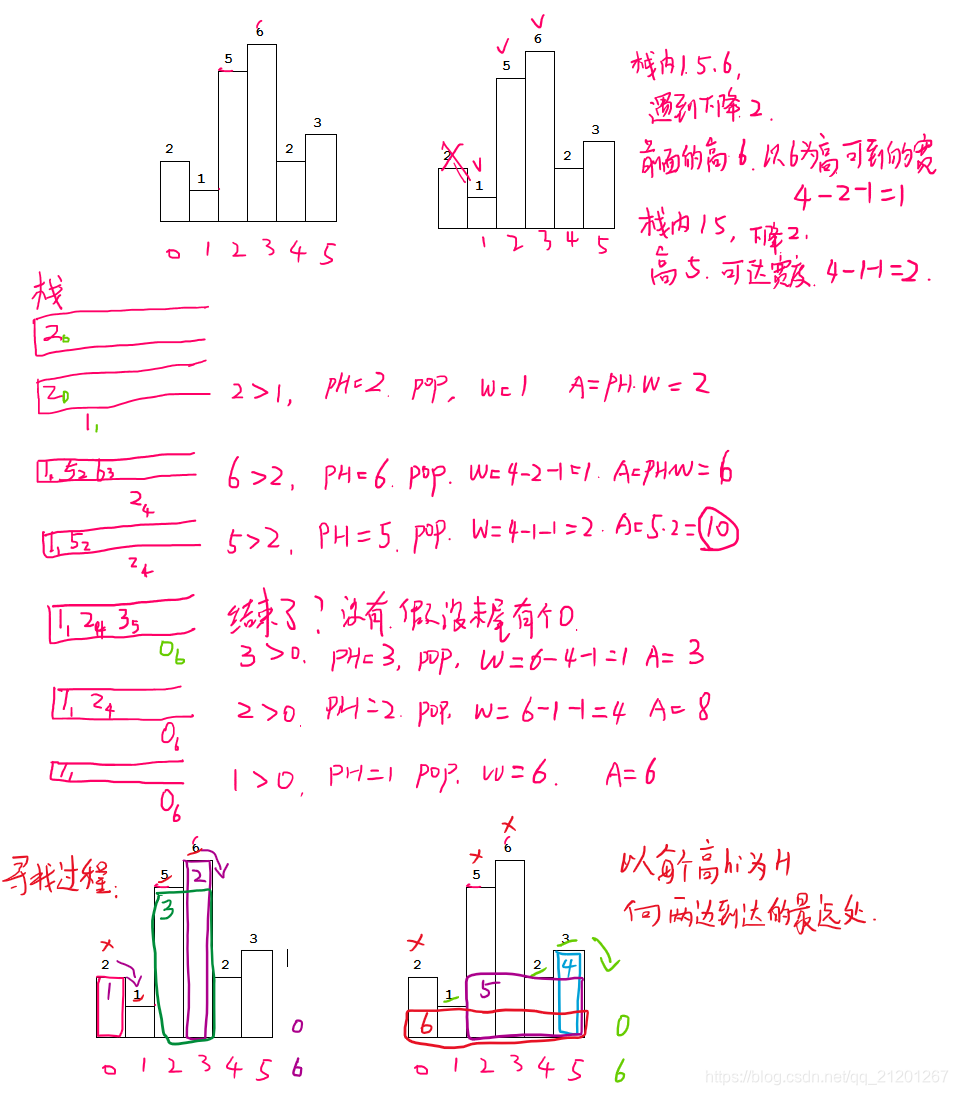 6
5
2
1
2
3
0 1 2 3 4 5
6
5
2
1
2
3
1 2 3 4 5
栈内1.5.6,
遇到下降2.
前面的高6.以6为高可到的宽
4-2-1=1
栈内15,下降2.
高5.可达宽度.4-1-1=2.
栈
2₀
2₀
1₁
2>1, PH=2. pop. W=1 A=PH.W=2
1₁ 5₂ 6₃
2₄
6>2, PH=6. pop. W=4-2-1=1. A=PH.W=6
1₁ 5₂
2₄
5>2, PH=5. pop. W=4-1-1=2. A=5.2=10
1₁ 2₄ 3₅
0₆
结束了?没有.假设末尾有个0.
3>0. PH=3, pop, W=6-4-1=1 A=3
1₁ 2₄
0₆
2>0. PH=2. pop. W=6-1-1=4 A=8
1₁
0₆
1>0, PH=1 pop. W=6. A=6
寻找过程:
6
5
2
1
2
3
1
2
3
0
0 1 2 3 4 5 6
6
5
2
1
2
3
4
5
6
0
0 1 2 3 4 5 6
以每个高hi为H
向两边到达的最远处.
https://blog.csdn.net/qq_21201267